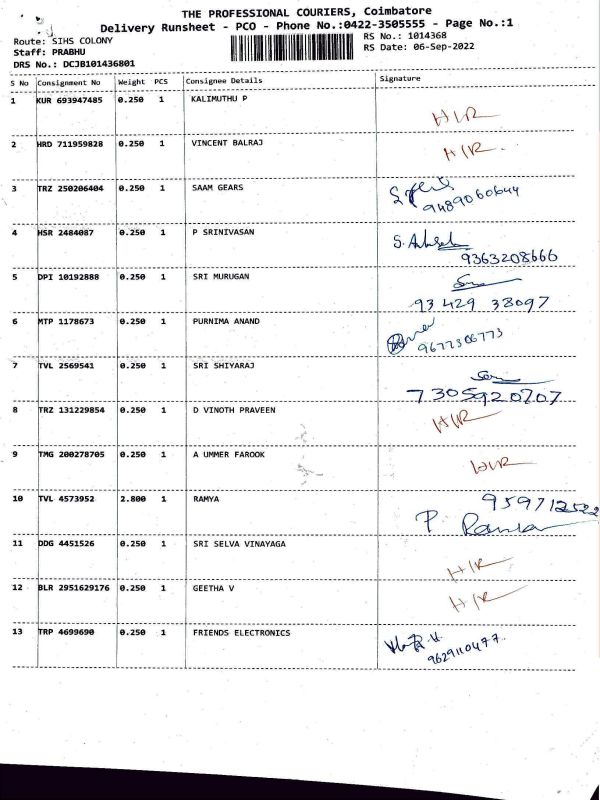 THE PROFESSIONAL COURIERS, Coimbatore
Delivery Runsheet - PCO - Phone No.:0422-3505555 - Page No.:1
Route: SIHS COLONY RS No.: 1014368
Staff: PRABHU RS Date: 06-Sep-2022
DRS No.: DCJB101436801
S No Consignment No Weight PCS Consignee Details Signature
1 KUR 693947485 0.250 1 KALIMUTHU P H/R
2 HRD 711959828 0.250 1 VINCENT BALRAJ H/R
3 TRZ 250206404 0.250 1 SAAM GEARS
9489060644
4 HSR 2484087 0.250 1 P SRINIVASAN
9363208666
5 DPI 10192888 0.250 1 SRI MURUGAN
93429 38097
6 MTP 1178673 0.250 1 PURNIMA ANAND
9677306773
7 TVL 2569541 0.250 1 SRI SHIYARAJ
7305920707
8 TRZ 131229854 0.250 1 D VINOTH PRAVEEN H/R
9 TMG 200278705 0.250 1 A UMMER FAROOK H/R
10 TVL 4573952 2.800 1 RAMYA 959712522
P
11 DDG 4451526 0.250 1 SRI SELVA VINAYAGA H/R
12 BLR 2951629176 0.250 1 GEETHA V H/R
13 TRP 4699690 0.250 1 FRIENDS ELECTRONICS
9629110477